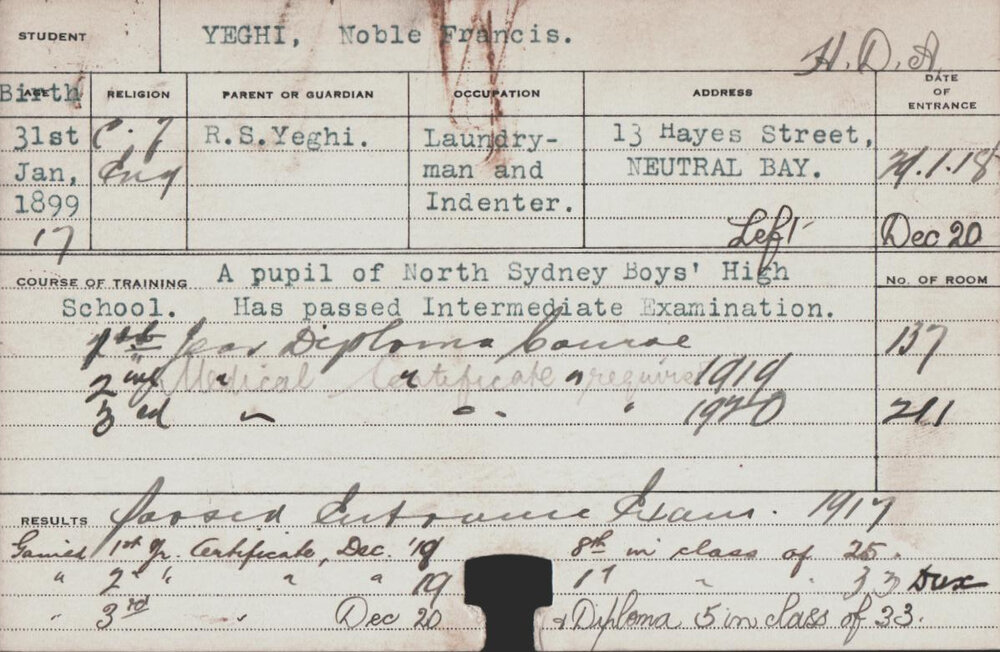 STUDENT YEGHI, Noble Francis.
H.D.A.
Birth AGE RELIGION PARENT OR GUARDIAN OCCUPATION ADDRESS DATE OF ENTRANCE
31st C. of R.S.Yeghi. Laundry- 13 Hayes Street,
Jan, Eng man and NEUTRAL BAY. 21.1.18
1899 Indenter.
17 Left Dec 20
COURSE OF TRAINING A pupil of North Sydney Boys' High No. OF ROOM
School. Has passed Intermediate Examination.
1st Year Diploma Course 137
2nd " " " 1919
Medical Certificate required
3rd " " " 1920 211
RESULTS Passed Entrance Exam. 1917
Gained 1st Yr. Certificate, Dec. '18 8th in class of 25.
" 2nd " " " 19 1st " " 33 Dux
" 3rd " Dec 20 & Diploma 5 in class of 33.